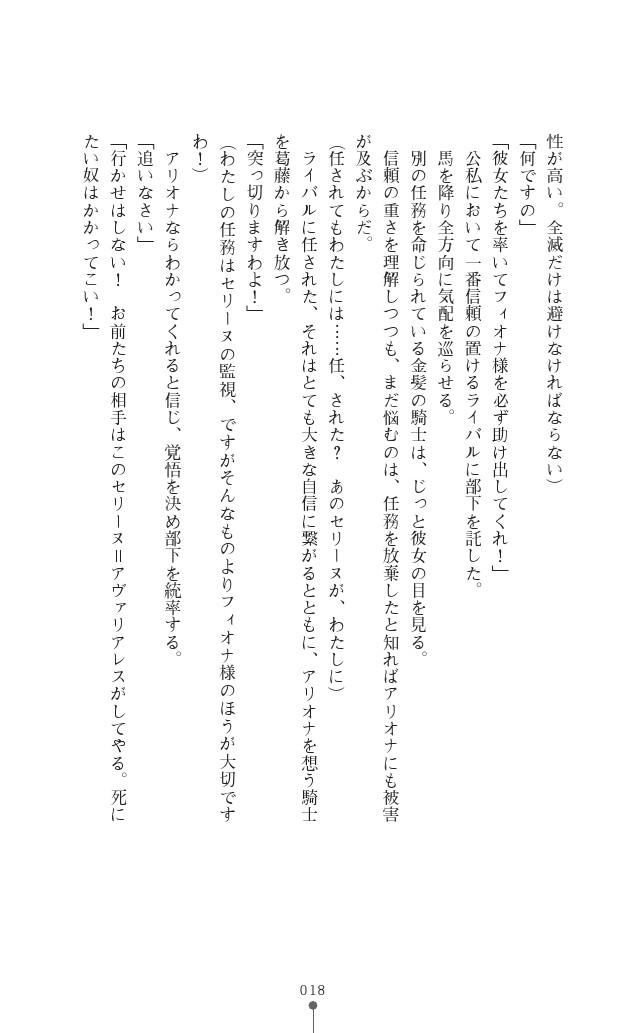 性が高い。全滅だけは避けなければならない)
「何ですの」
「彼女たちを率いてフィオナ様を必ず助け出してくれ！」
　公私において一番信頼の置けるライバルに部下を託した。
　馬を降り全方向に気配を巡らせる。
　別の任務を命じられている金髪の騎士は、じっと彼女の目を見る。
　信頼の重さを理解しつつも、まだ悩むのは、任務を放棄したと知ればアリオナにも被害
が及ぶからだ。
(任されてもわたしには……任、された？　あのセリーヌが、わたしに)
　ライバルに任された、それはとても大きな自信に繋がるとともに、アリオナを想う騎士
を葛藤から解き放つ。
「突っ切りますわよ！」
(わたしの任務はセリーヌの監視、ですがそんなものよりフィオナ様のほうが大切です
わ！)
　アリオナならわかってくれると信じ、覚悟を決め部下を統率する。
「追いなさい」
「行かせはしない！　お前たちの相手はこのセリーヌ＝アヴァリアレスがしてやる。死に
たい奴はかかってこい！」
018